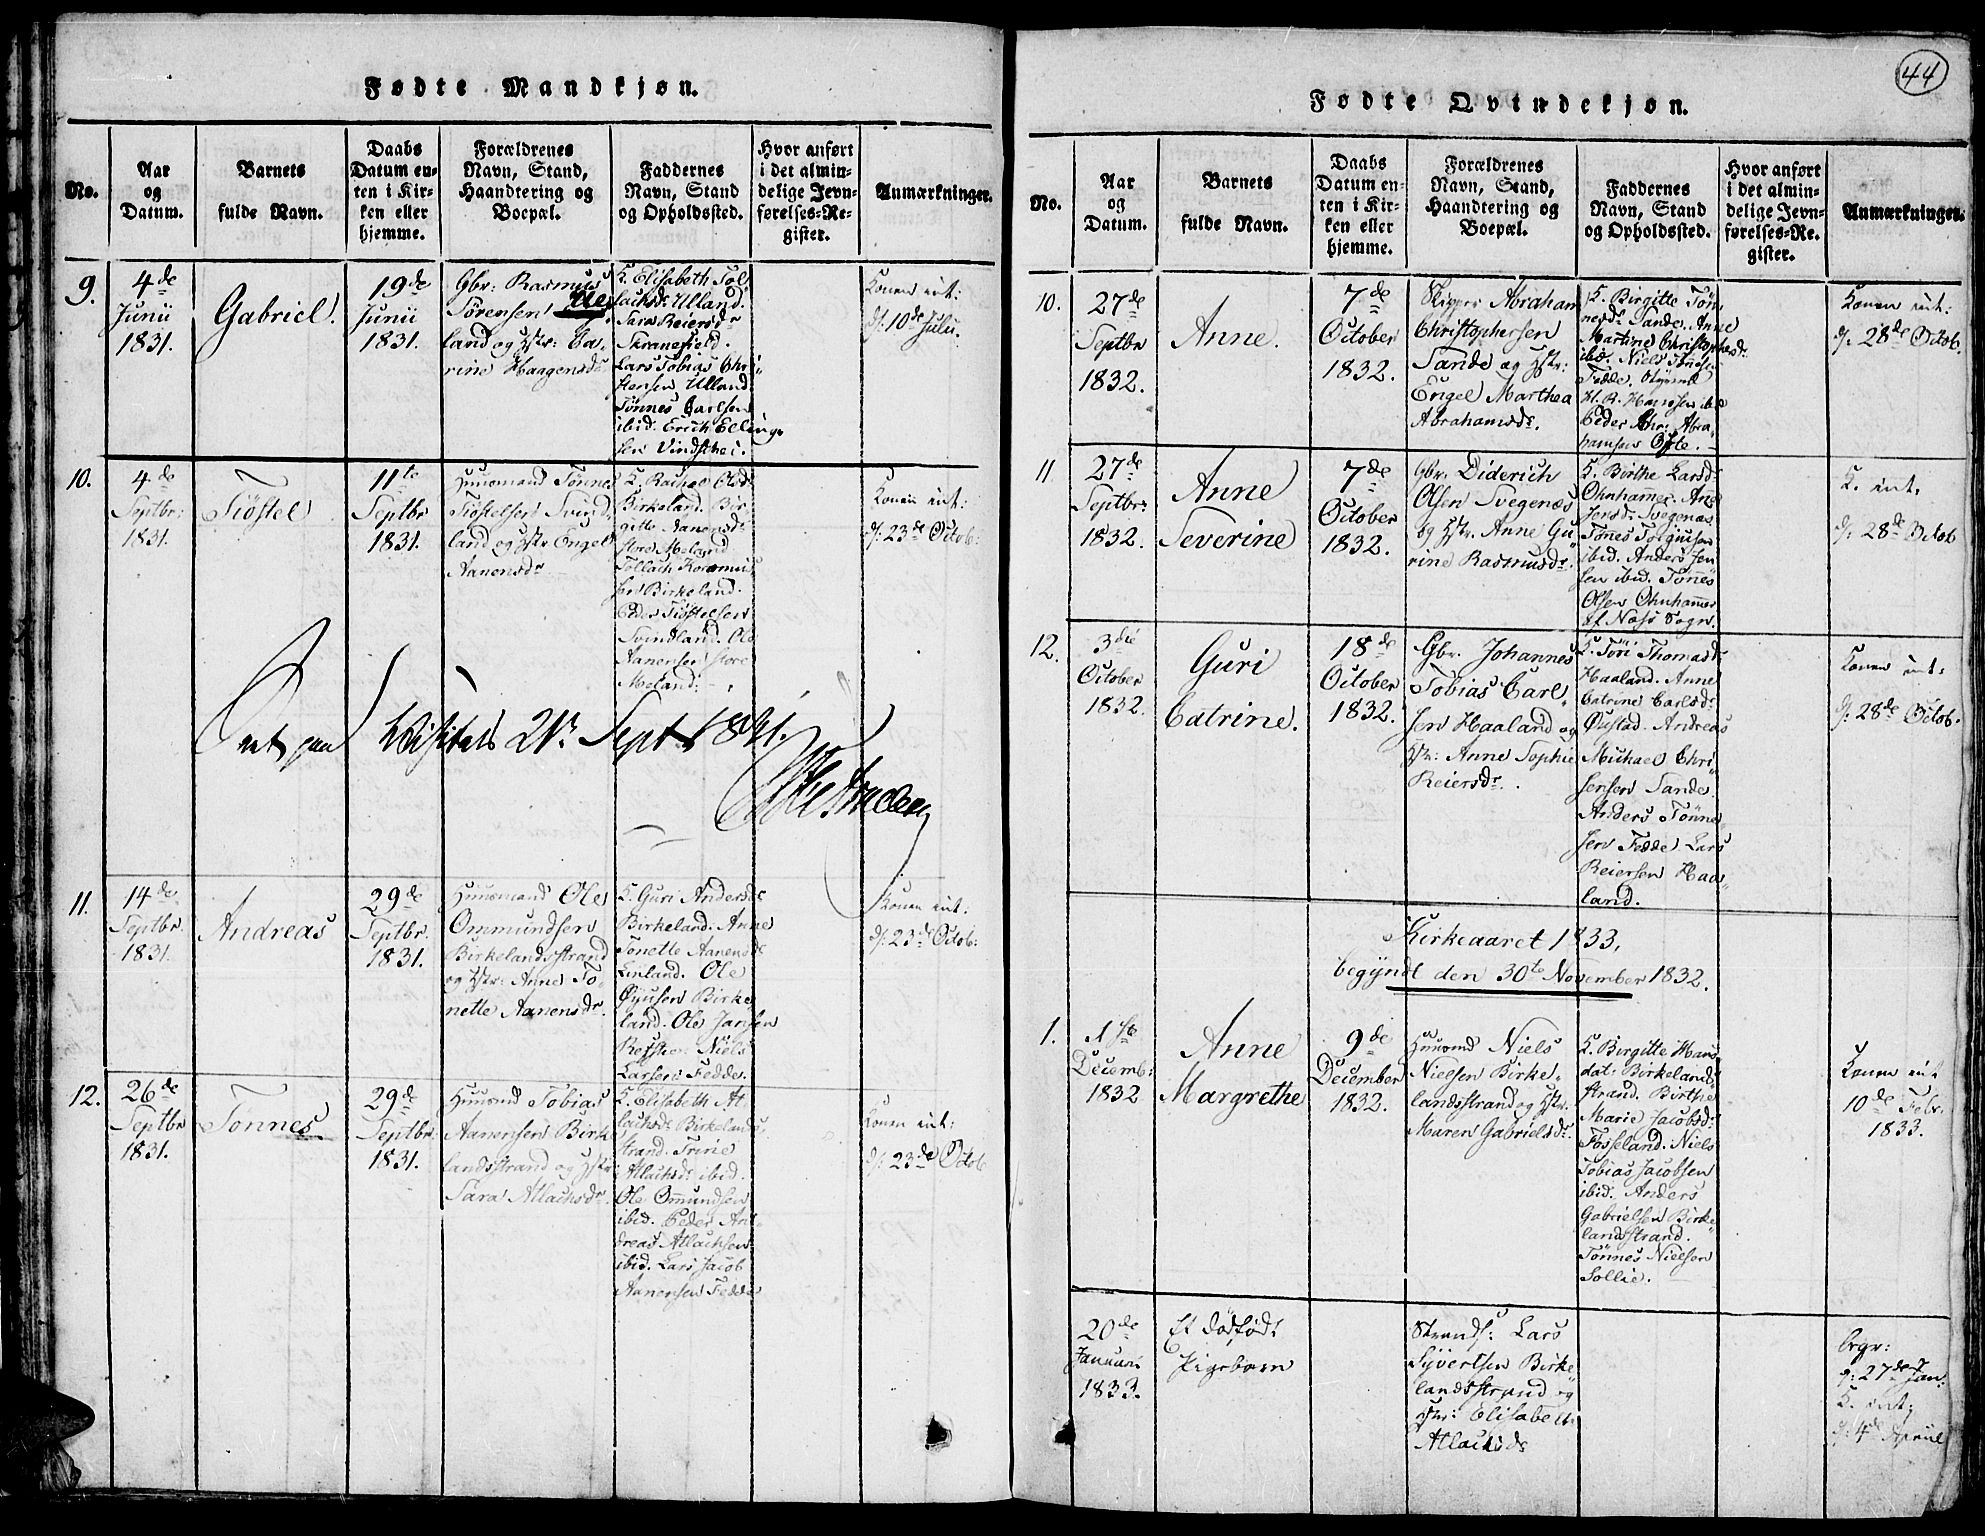 Fødte Mandkjøn.
No.
Aar
og
Datum.
Barnets
fulde Navn.
Daabs
Datum en-
ten i Kir-
ken eller
hjemme.
Forældrenes
Navn, Stand,
Haandtering og
Boepæl.
Faddernes
Navn, Stand
og Opholdssted.
Hvor anført
i det almin-
delige Jevn-
førelses-Re-
gister.
Anmærkninger.
9.
4de
Junii
1831.
Gabriel.
19de
Junii
1831.
Gbr: Rasmus
Sørensen Ul
land og Hstr: Ca,
rine Haagensdr
K. Elisabeth Tol
lachsdr Ulland.
Sara Reiersdr
Skranefield.
Lars Tobias Chri
stensen Ulland
Tønnes Carlsen
ibid. Erich Elling,
sen Vindsthei.
Konen int:
d: 10de Julii.
10.
4de
Septbr:
1831.
Tiøstel
11te
Septbr
1831.
Huusmand Tønnes
Tiøstelsen Svind,
land og Hstr Engel
Aanensdr
K. Rachel Olsd.
Birkeland. Bir
gitte Aanensdr
store Meland
Tollach Rasmus
sen Birkeland.
Peder Tiøstelsen
Svindland. Ole
Aanensen store
Meland.
Konen int:
d: 23de Octob:
paa Visitats 21de Sept 1831.
11.
14de
Septbr.
1831.
Andreas
29de
Septbr.
1831.
Huusmand Ole
Ommundsen
Birkelandsstrand
og Hstr: Anne To,
nette Aanensdr.
K. Guri Andersdr
Birkeland. Anne
Tonette Aanensdr
Linland. Ole
Øyusen Birke
land. Ole Jansen
Niels
Larsen Fedde.
Konen int:
d: 23de Octob:
12.
26de
Septbr
1831.
Tønnes
29de
Septbr.
1831.
Huusmd Tobias
Aanensen Birke
landsstrand og Hstr
Sara Atlachsdr
K. Elisabeth At
lachsdr Birkelands,
strand. Trine
Atlachsdr ibid.
Ole Ommundsen
ibid. Peder An,
dreas Atlachsen
ibid. Lars Jacob
Aanensen Fedde
Konen int:
d: 23de Octob
44
Fødte Qvindekjøn.
No.
Aar
og
Datum.
Barnets
fulde Navn.
Daabs
Datum en-
ten i Kir-
ken eller
hjemme.
Forældrenes
Navn, Stand,
Haandtering og
Boepæl.
Faddernes
Navn, Stand
og Opholdssted.
Hvor anført
i det almin-
delige Jevn-
førelses-Re-
gister.
Anmærkninger.
10.
27de
Septbr
1832.
Anne.
7de
October
1832.
Skipper Abraham
Christophersen
Sande og Hstr:
Engel Marthea
Abrahamsdr.
K. Birgitte Tøn
nesdr Sande. Anne
Martine Christophersdr
ibid. Niels Tønesen
Fedde.
H. R. Hansen ibid
Peder Chr: Abra,
hamsen Ofte.
Konen int:
d: 28de Octob.
11.
27de
Septbr:
1832.
Anne
Severine
7de
October
1832.
Gbr. Diderich
Olsen Svegenæs
og Hstr. Anne Gu
rine Rasmusdr.
K. Birthe Larsd.
Ohnhamer. Ane
Jensdr Svegenæs
Tønes Torgiusen
ibid. Anders Jen
sen ibid. Tønnes
Olsen Ohnhamer
af Næss Sogn.
K. int:
d: 28de Octob
12.
3die
October
1832.
Guri
Catrine.
18de
October
1832.
Gbr. Johannes
Tobias Carl,
sen Haaland og
Hstr: Anne Sophie
Reiersdr.
K. Tøri Thomasdr
Haaland. Anne
Catrine Carlsdr
Øiestad. Andreas
Michael Chri
sensen Sande.
Anders Tønne
sen Fedde. Lars
Reiersen Haa,
land.
Konen int:
d: 28de Octob.
Kirkeaaret 1833,
begyndt den 30te November 1832.
1.
1ste
Decemb:
1832
Anne
Margrethe
9de
December
1832.
Huusmd Niels
Nielsen Birke,
landsstrand og Hstr.
Maren Gabrielsdr.
K. Birgitte Hans
dat: Birkelands
strand. Birthe
Marie Jacobsdr
Fosseland. Niels
Tobias Jacobsen
ibid. Anders
Gabrielsen Birke,
landsstrand.
Tønnes Nielsen
Sollie.
Konen int
10de Febr.
1833.
20de
Januari
1833.
Et dødfødt
Pigebarn
Strands: Lars
Syvertsen Birke,
landsstrand og
Hstr: Elisabeth
Atlachsdr
begr:
d: 27de Jan:
K. int:
d: 4de April